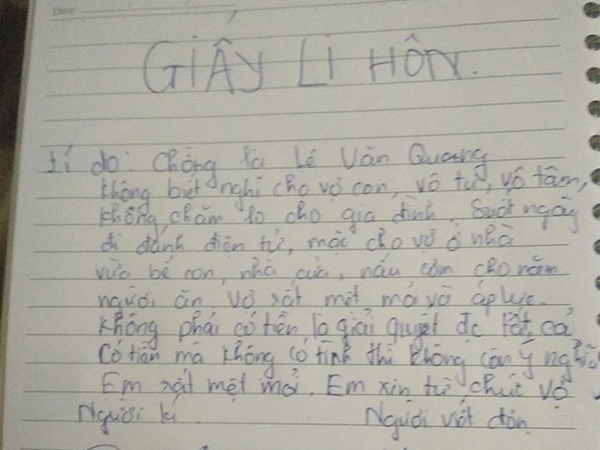 GIẤY LI HÔN.
Lí do: Chồng là Lê Văn Quang
không biết nghĩ cho vợ con, vô tư, vô tâm,
không chăm lo cho gia đình. Suốt ngày
đi đánh điện tử, mặc cho vợ ở nhà
vừa bế con, nhà cửa, nấu cơm cho năm
người ăn. Vợ rất mệt mỏi và áp lực.
Không phải có tiền là giải quyết đc tất cả
Có tiền mà không có tình thì không còn ý nghĩa
Em rất mệt mỏi. Em xin từ chức vợ
Người kí. Người viết đơn